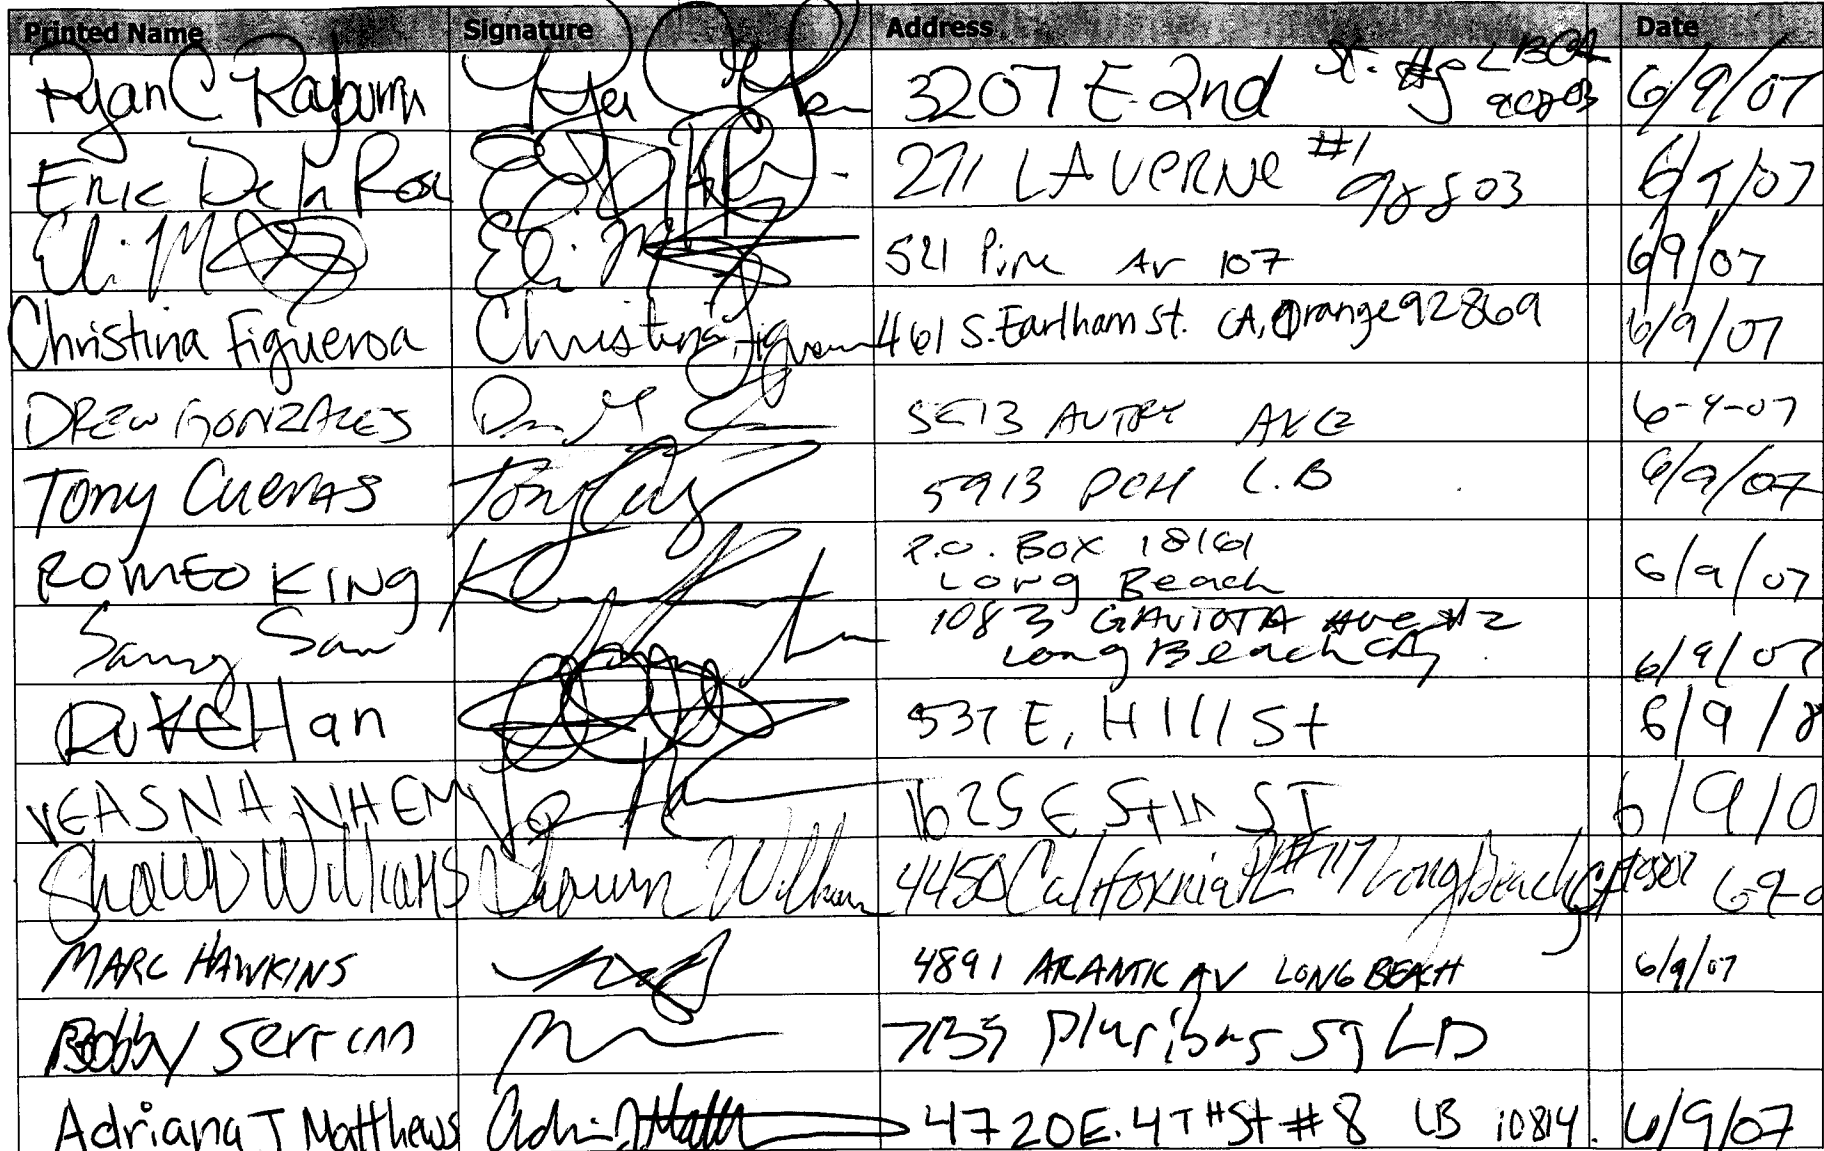 Printed Name Signature Address Date
Ryan C Rayburn 3207 E 2nd St. #5 LBCA 90803 6/9/07
Eric De La Rosa 271 LAVERNE #1 90803 6/9/07
Eli M Eli M 521 Pine Av 107 6/9/07
Christina Figueroa Christina Figueroa 461 S. Earlham St. CA, Orange 92869 6/9/07
DREW GONZALES AUTRY AVE 6-9-07
TONY CUEVAS Tony 5913 PCH L.B 6/9/07
ROMEO KING P.O. BOX 18161 Long Beach 6/9/07
Samy San 1083 GAVIOTA Ave #2 Long Beach CA, 6/9/07
DUKE Han 537 E, Hill St 6/9/
VEASNA NHEM 1625 E 5th ST 6/9/0
Shawn Williams Shawn Williams 4450 California PL #117 Long Beach CA 6-9-0
MARC HAWKINS 4891 ATLANTIC AV LONG BEACH 6/9/07
Bobby Serrano
Adriana T Matthews 4720 E. 4TH St #8 LB 10814. 6/9/07